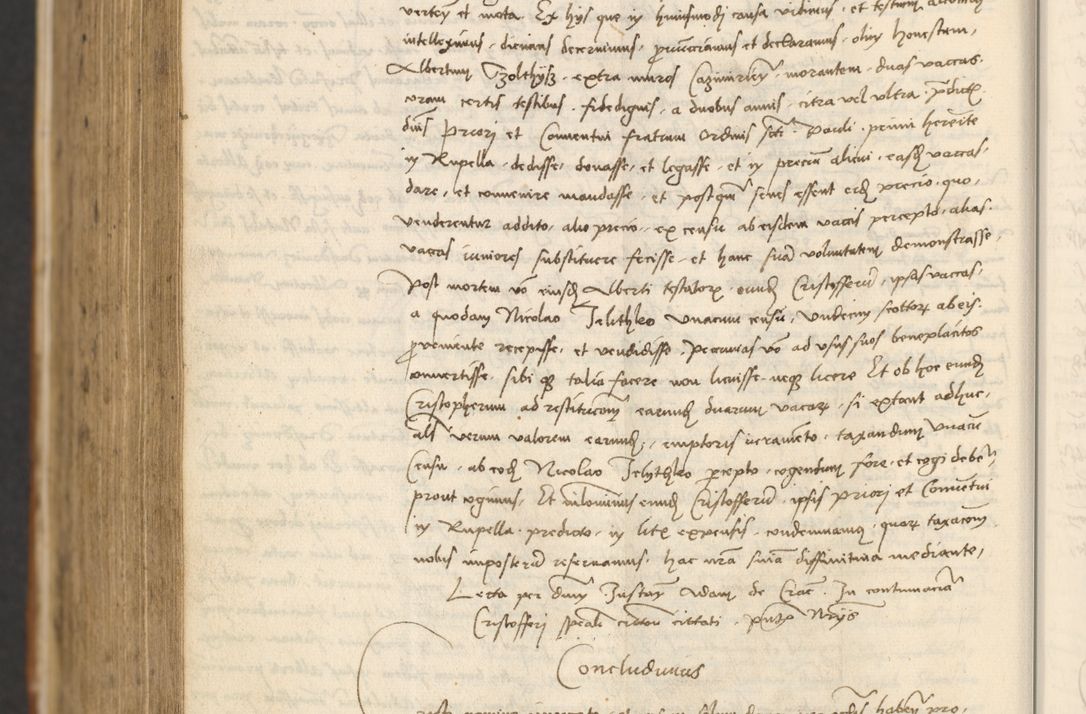 vertem et mota. Ex hys que in huiusmodi causa vidimus, et testium
intelleximus, dicimus decernimus, pronunciamus et declaramus, olim honestum,
Albertum Zolthysz, extra muros Cazimirien, morantem, duas vaccas,
coram certis testibus, fidedignis, a duobus annis, citra vel ultra, pdict
dnis Priori et Conventui fratrum ordinis scti Pauli, primi heremite
in Rupella, dedisse, donasse, et legasse, et in precium alicui, easdem vaccas
dare, et convenire mandasse, et postquam senes essent eodem precio, quo,
venderentur addito, alio precio, ex censu ab eisdem vaccis percepto, alias
vaccas iuniores substituere fecisse, et hanc suam voluntatem demonstrasse,
Post mortem vero eiusdem Alberti testatoris, eundem Cristofferum, ipsas vaccas,
a quodam Nicolao Jelithko unacum censu, undecim scottorum ab eis,
proveniente recepisse, et vendidisse, Pecunias vero ad usus suos beneplacitos
convertisse, sibi que talia facere non licuisse neque licere Et ob hoc eundem
Cristopherum ad restitucionem earundem duarum vaccarum, si extant adhuc,
als verum valorem earundem, emptoris iuramento, taxandum unacum
Censu, ab eodem Nicolao Jelythko percepto, cogendum fore, et cogi debere,
prout cogimus, Et nihilominus eundem Cristofferum, ipsis Priori et Conventui
in Rupella predicto, in litis expensis, condemnamus, quarum taxacionem
nobis imposterum reservamus, hac nostra sentencia diffinitiva mediante,
Lecta per dnum Justum Adam de Crac. In contumaciam
Cristofferi speciali citatione citati, pntibus Notariis
Concludimus